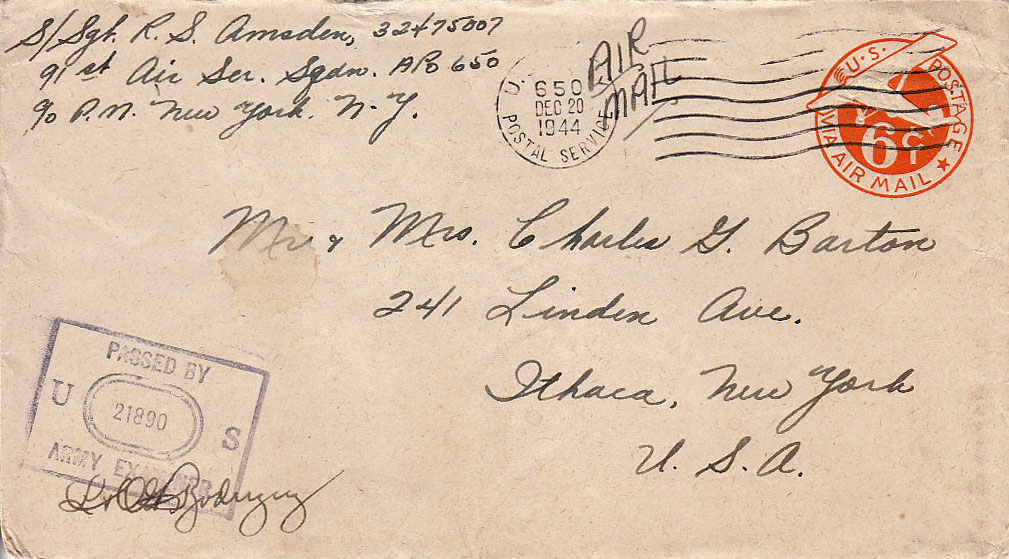 S/Sgt. R. S. Amsden, 32475007
91st Air Ser. Sqdn. APO 650
c/o P.M. New York. N.Y.
AIR
MAIL
U.
650
DEC 20
1944
POSTAL SERVICE
U.S. POSTAGE
6¢
VIA AIR MAIL
Mr & Mrs. Charles G. Barton
241 Linden Ave.
Ithaca, New York
U. S. A.
PASSED BY
U 21890 S
ARMY EXAMINER